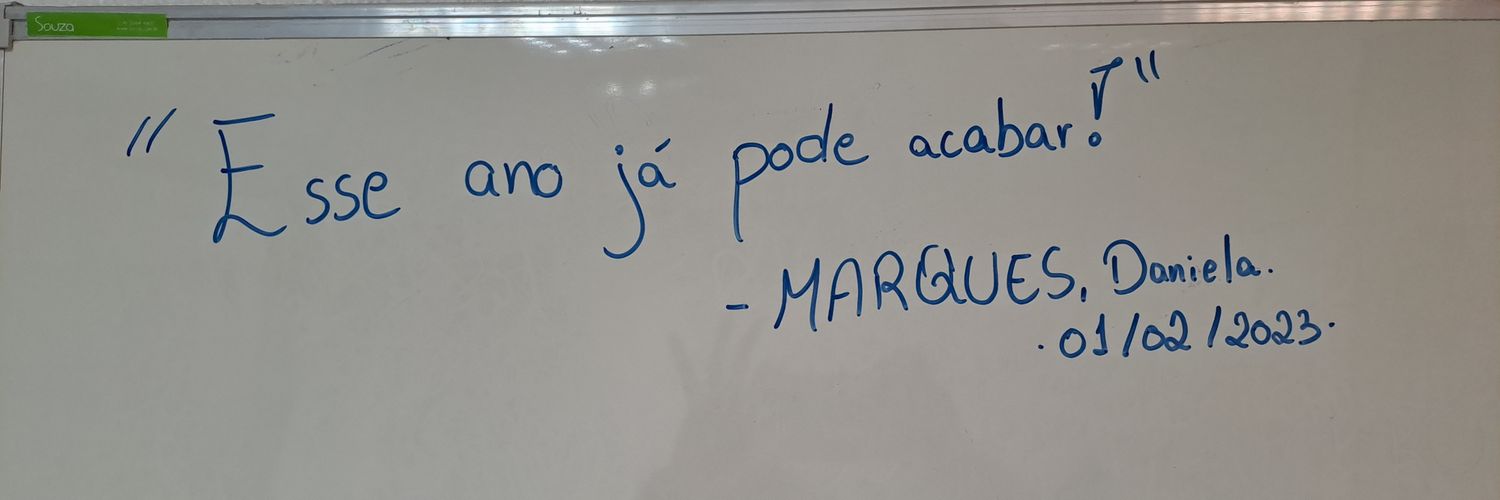 Souza
"Esse ano já pode acabar!"
- MARQUES, Daniela.
. 01/02/2023.